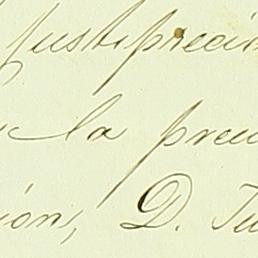 justiprecia
la pre
ión, D. Ju